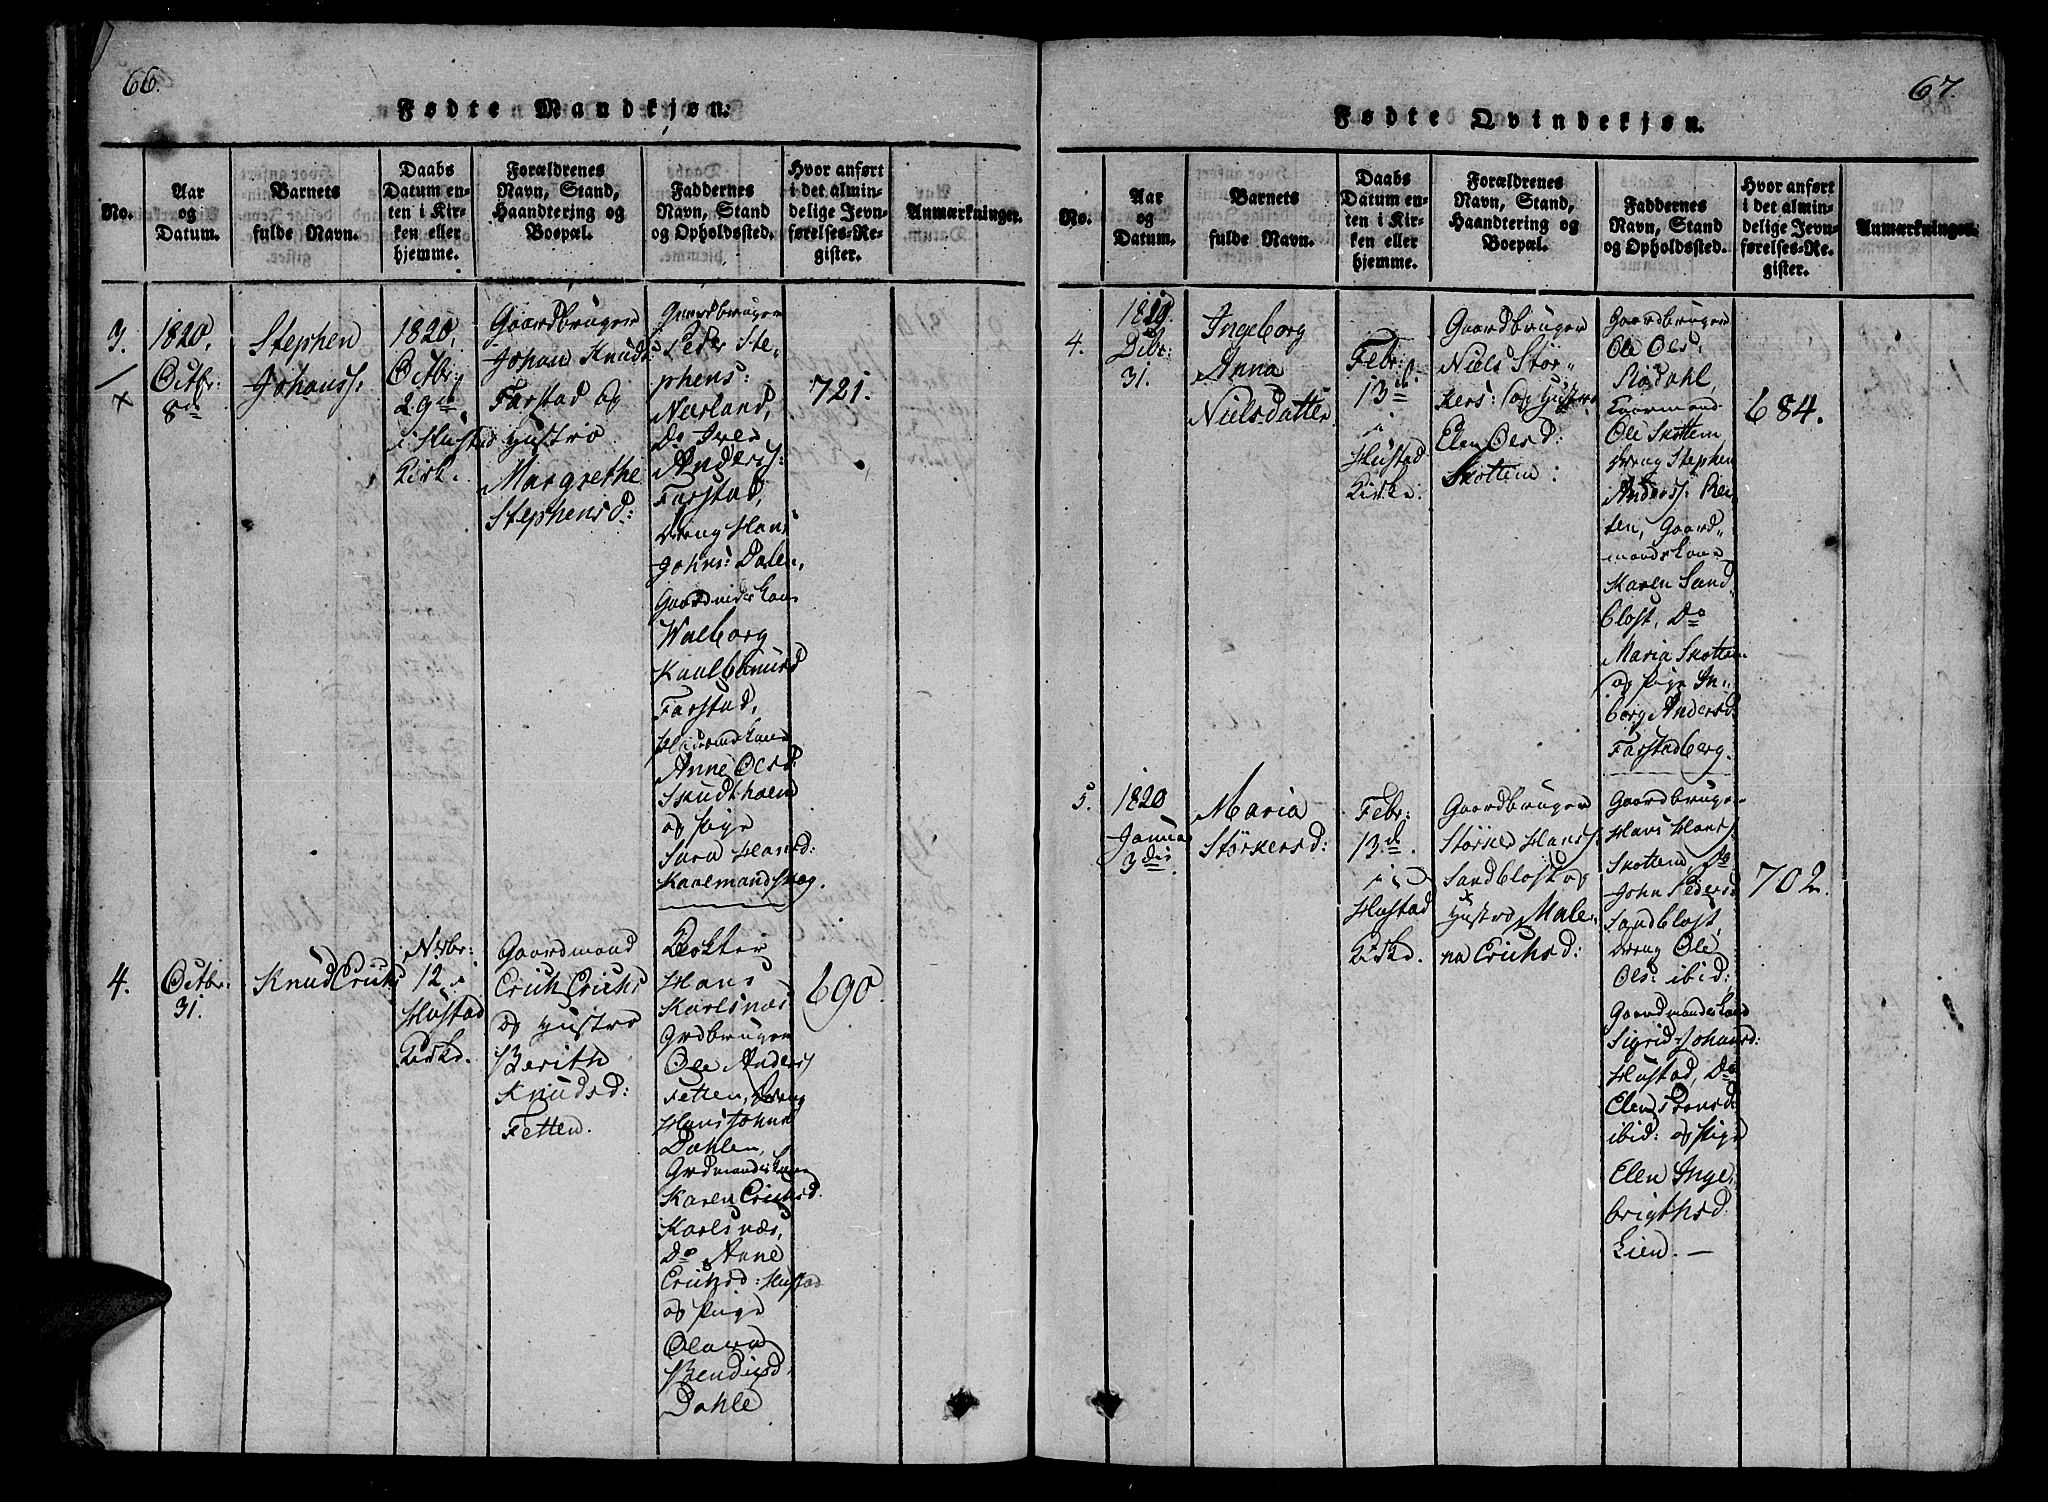 66.
Fødte Mandkjøn.
No.
Aar
og
Datum.
Barnets
fulde Navn.
Daabs
Datum en-
ten i Kir-
ken eller
hjemme.
Forældrenes
Navn, Stand,
Haandtering og
Boepæl.
Faddernes
Navn, Stand
og Opholdssted.
Hvor anført
i det almin-
delige Jevn-
førelses-Re-
gister.
Anmærkninger.
3.
1820,
Octbr:
8de
Stephen
Johanss:
1820,
Octbr:
29de
i Hustad
Kirk.
Gaardbruger
Johan Knuds:
Farstad og
Hustro
Margrethe
Stephensd:
Gaardbruger
Peder Ste-
phens:
Nærland,
Do Iver
Anders:
Farstad,
Dreng Hans
Johns: Dalen,
Walborg
Farstad,
Anne Olsd:
og Pige
Sara Hansd:
Kaalmandskog.
721.
4.
Octbr:
31.
Knud Erichs
Nvbr:
12. i
Hustad
Kirke.
Gaardmand
Erich Erichs
og Hustro
Berith
Knudsd:
Fetten.
Hans
Karlsnæs
Grdbruger
Ole Anders
Fetten, Dreng
Hans Johns
Dahlen,
Grdmandskone
Karen Erichsd.
Karlsnæs,
Do Anne
Erichsd: Hustad
og Pige
Bendixd.
Dahle
690.
67.
Fødte Qvindekjøn.
No.
Aar
og
Datum.
Barnets
fulde Navn.
Daabs
Datum en-
ten i Kir-
ken eller
hjemme.
Forældrenes
Navn, Stand,
Haandtering og
Boepæl.
Faddernes
Navn, Stand
og Opholdssted.
Hvor anført
i det almin-
delige Jevn-
førelses-Re-
gister.
Anmærkninger.
4.
1819
Dcbr:
31.
Ingeborg
Anna
Nielsdatter
Febr:
13de
i
Hustad
Kirke.
Gaardbruger
Niels Stör-
kers: og Hustro
Elen Olsd:
Skottem:
Gaardbruger
Ole Ols:
Rødahl,
Ole Skottem
Dreng Stephen
Anderss: Rei-
ten, Gaard-
mandskone
Karen Sand-
blost, Do
Maria Skottem
og Pige In-
borg Andersd:
Farstadberg.
684.
5.
1820
Janua
3die
Maria
Störkersd:
Febr:
13de
i
Hustad
Kirke.
Gaardbruger
Störker Hans:
Sandblost og
Hustro Male-
na Erichsd:
Gaardbruger
Hans Hans:
Skottem, Do
John Peders
Sandblost,
Dreng Ole
Ols: ibid:
Gaardmandskone
Sigrid Johansd:
Hustad, Do
Elen
ibid: og Pige
Elen Inge-
brigthsd:
Lien. —
702.